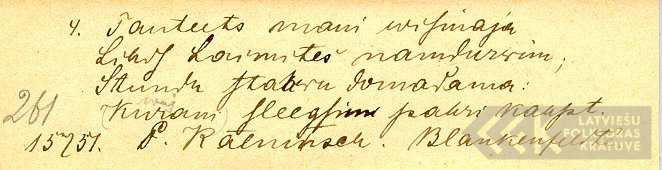 4. Tauteets mani wisinaja
Lihds Laimites namdurwim;
Stundu stahwu domadama:
261 (Kurami) sleegsnim pahri kahpt.
15751. P. Kalninsch. Blankenfeldē
LATVIEŠU
FOLKLORAS
KRĀTUVE